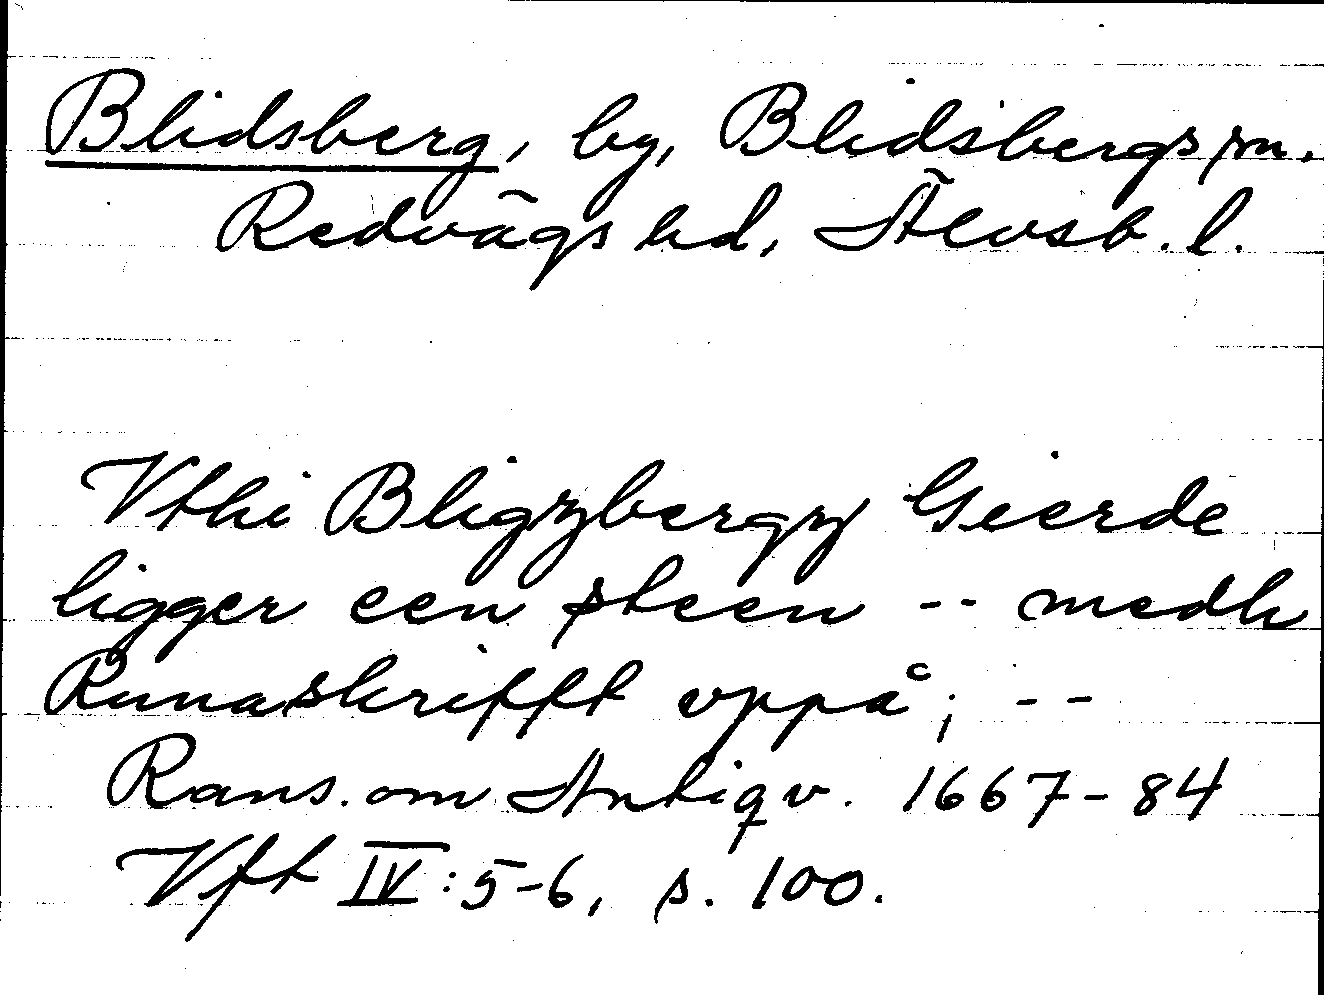 Blidsberg, by, Blidsbergs sn.
Redvägs hd, Älvsb. l.
Vthi Bligzbergz Geerde
ligger een steen -- medh
Runaskrifft vppå; --
Rans. om Antiqv. 1667-84
Vft IV:5-6, s. 100.